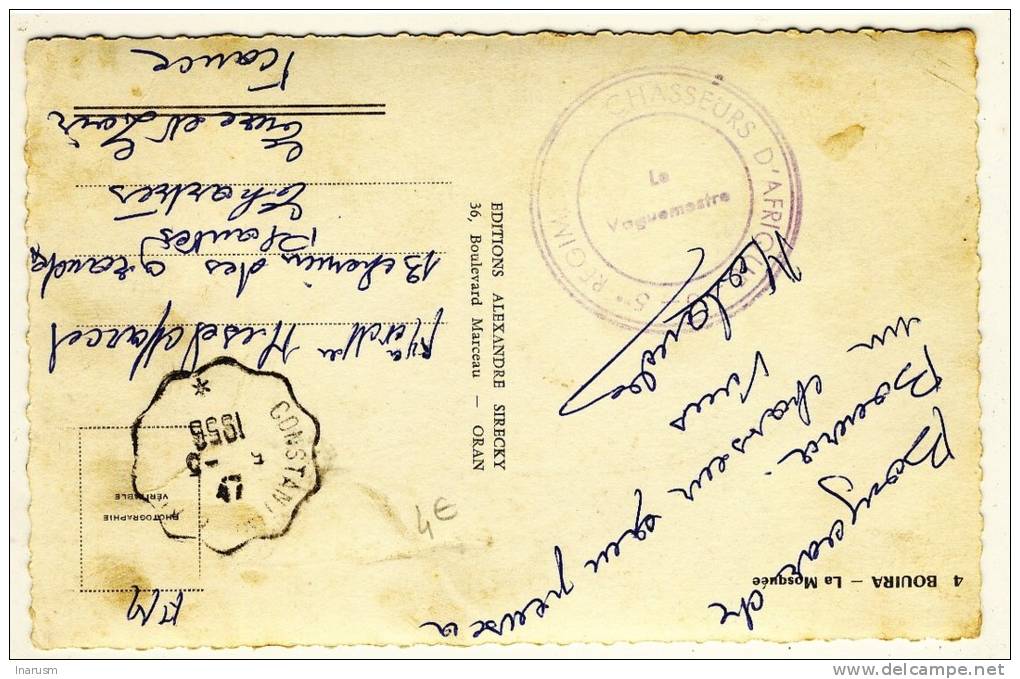 4 BOUIRA — La Mosquée
Bonjour de
Bouira
un chasseur qui pense a
vous
EDITIONS ALEXANDRE SIRECKY
36, Boulevard Marceau — ORAN
5e REGIMENT CHASSEURS D'AFRIQUE
Le
Vaguemestre
FM
PHOTOGRAPHIE
VÉRITABLE
CONSTANTINE
47
5 - 5
1956
*
Marcel
13 chemin des Grandes
Plantes
Chartres
Eure et Loir
France
4€
lnarusm
www.delcampe.net